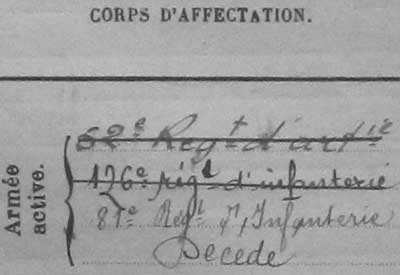 CORPS D'AFFECTATION.
Armée active.
62e Regt d'artie
176e régt d'infanterie
81e Régt d'Infanterie
Decede